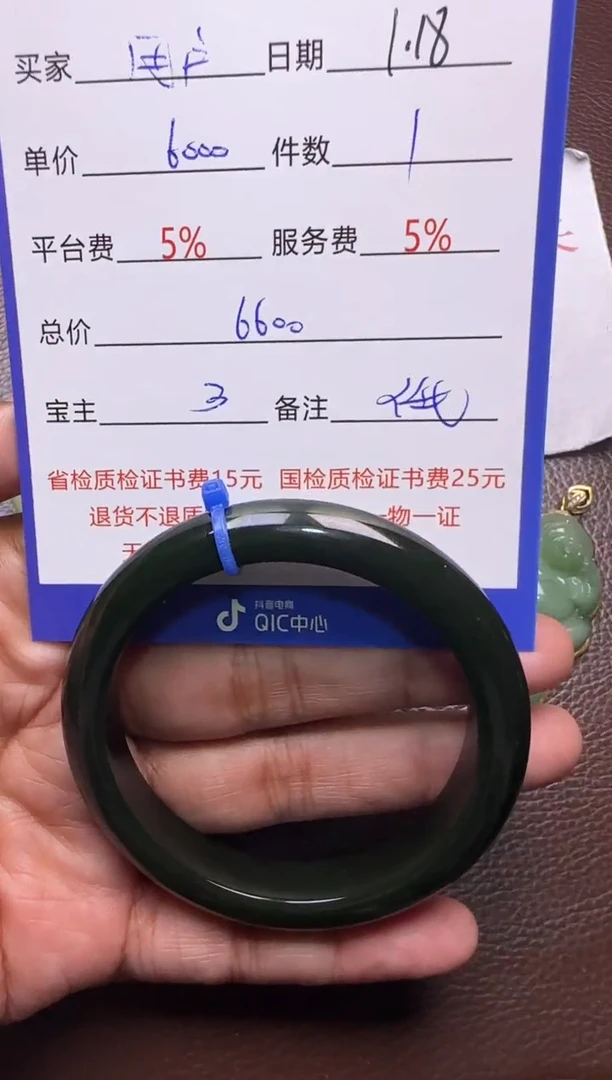 买家 日期 1.18
单价 6000 件数 1
平台费 5% 服务费 5%
总价 6600
宝主 3 备注
省检质检证书费15元 国检质检证书费25元
退货不退质 一物一证
无
抖音电商
QIC中心